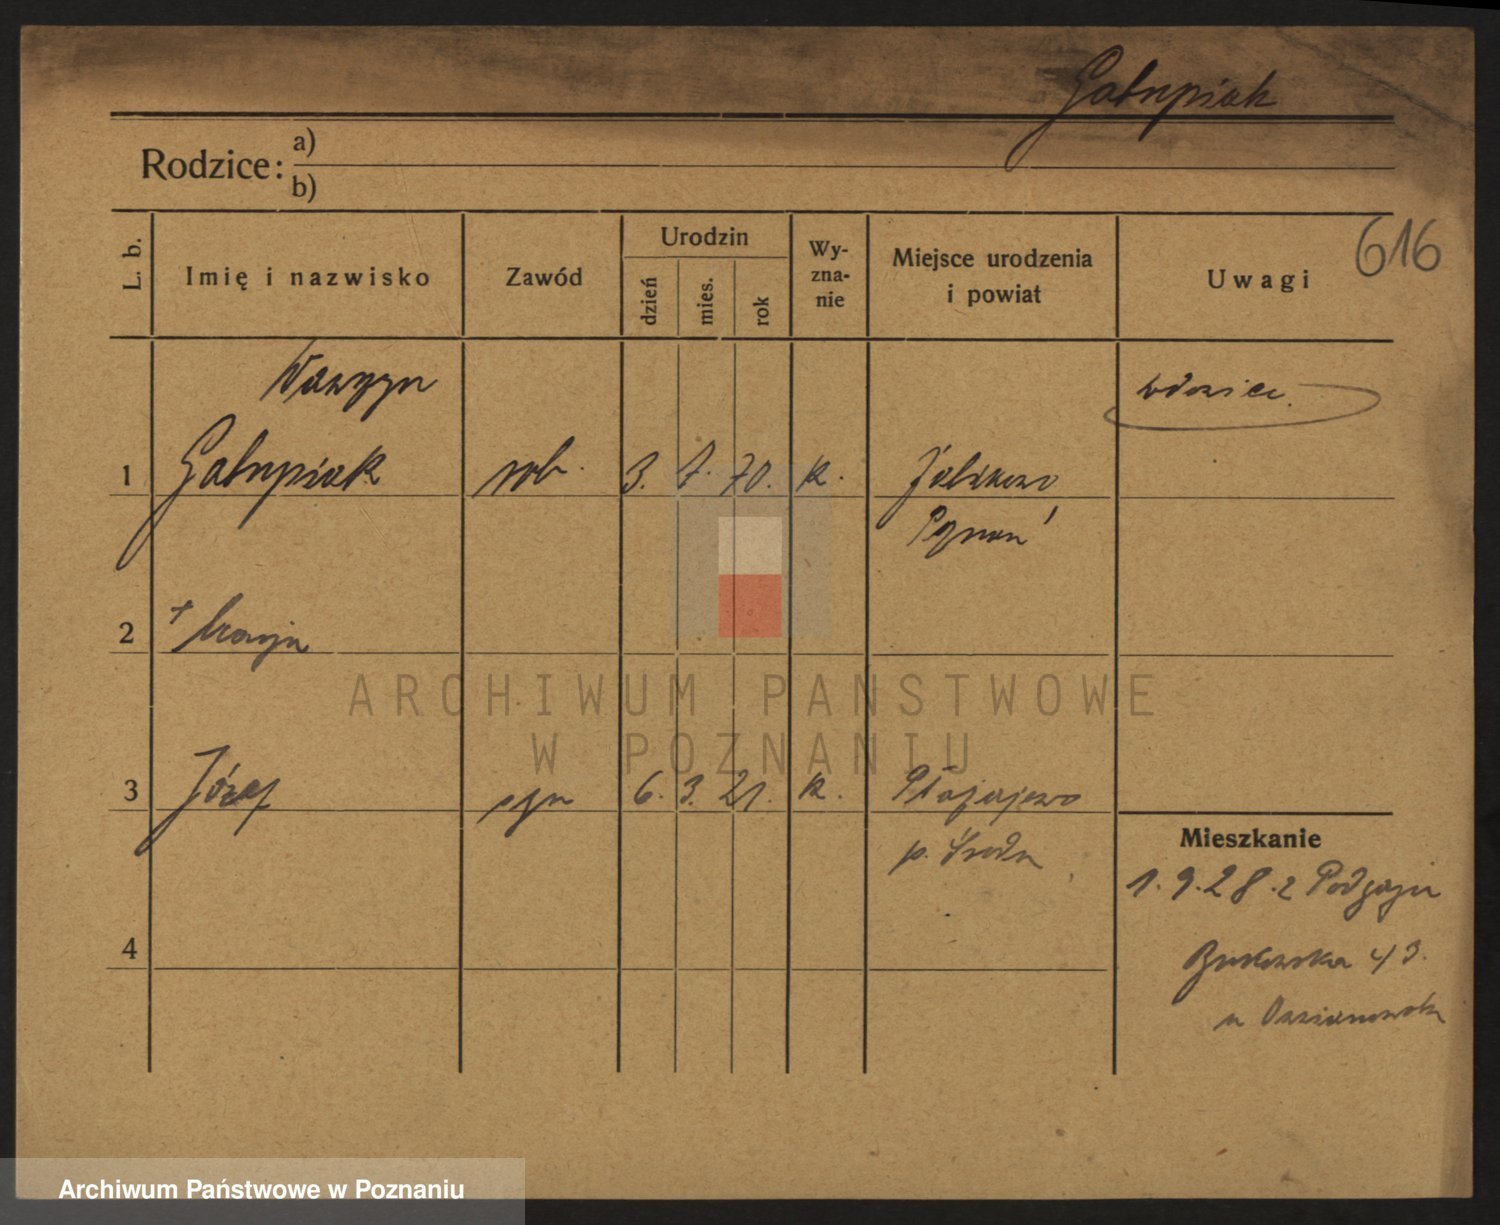 Gałupiak
Rodzice: a)
b)
616
L. b. Imię i nazwisko Zawód Urodzin dzień mies. rok Wy-zna-nie Miejsce urodzenia i powiat Uwagi
Wawrzyn wdowiec
1 Gałupiak rob. 3. 7. 70. k.
Poznań
2 + Marja
3 Józef syn 6. 3. 21. k.
p. Środa
Mieszkanie
1.9.28. z Podgaju
4
Bukowska 43.
u
ARCHIWUM PAŃSTWOWE
W POZNANIU
Archiwum Państwowe w Poznaniu